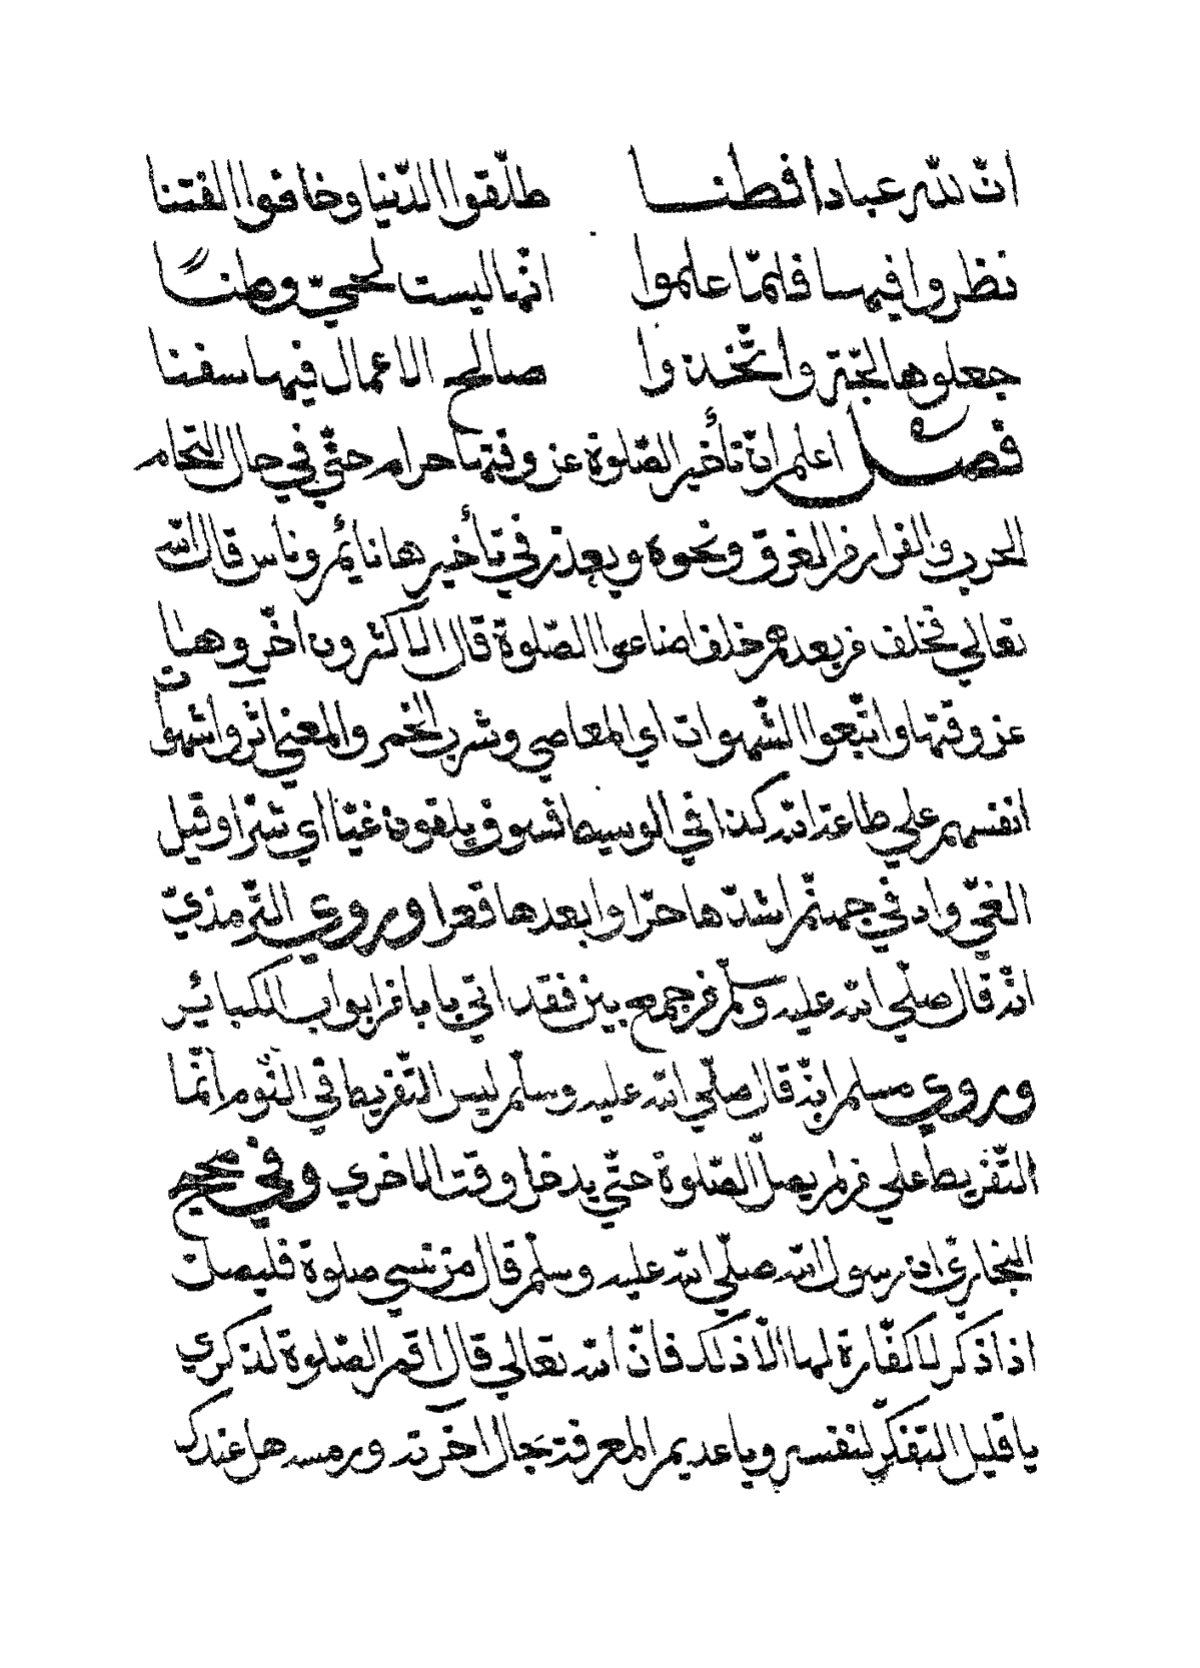 انّ للّه عبادا فطنا طلّقوا الدّنيا وخافوا الفتنا
نظروا فيها فلمّا علموا انّها ليست لحيّ وطنًا
جعلوها لجّة واتّخذوا صالح الاعمال فيها سفنا
فصل اعلم انّ تأخير الصّلوة عن وقتها حرام حتّي في حال التحام
الحرب والفرار من الغرق ونحوه ويعذر في تأخيرها نائم وناس قال اللّه
تعالي فخلف من بعدهم خلف اضاعوا الصّلوة قال الاكثرون اخّروها
عن وقتها واتّبعوا الشّهوات اي المعاصي وشرب الخمر والمعني اثروا شهوات
انفسهم علي طاعة اللّه كذا في الوسيط فسوف يلقون غيّا اي شرّا وقيل
الغيّ واد في جهنّم اشدّها حرّا وابعدها قعرا وروي التّرمذيّ
انّه قال صلّي اللّه عليه وسلّم من جمع بين فقد اتي بابا من ابواب الكبائر
وروي مسلم انّه قال صلّي اللّه عليه وسلّم ليس التّفريط في النّوم انّما
التّفريط علي من لم يصلّ الصّلوة حتّي يدخل وقت الاخري وفي صحيح
البخاريّ ان رسول اللّه صلّي اللّه عليه وسلّم قال من نسي صلوة فليصلّ
اذا ذكر لا كفّارة لها الّا ذلك فانّ اللّه تعالي قال اقم الصّلوة لذكري
يا قليل التفكّر لنفسه ويا عديم المعرفة بحال آخرته ورمسه هل عندك